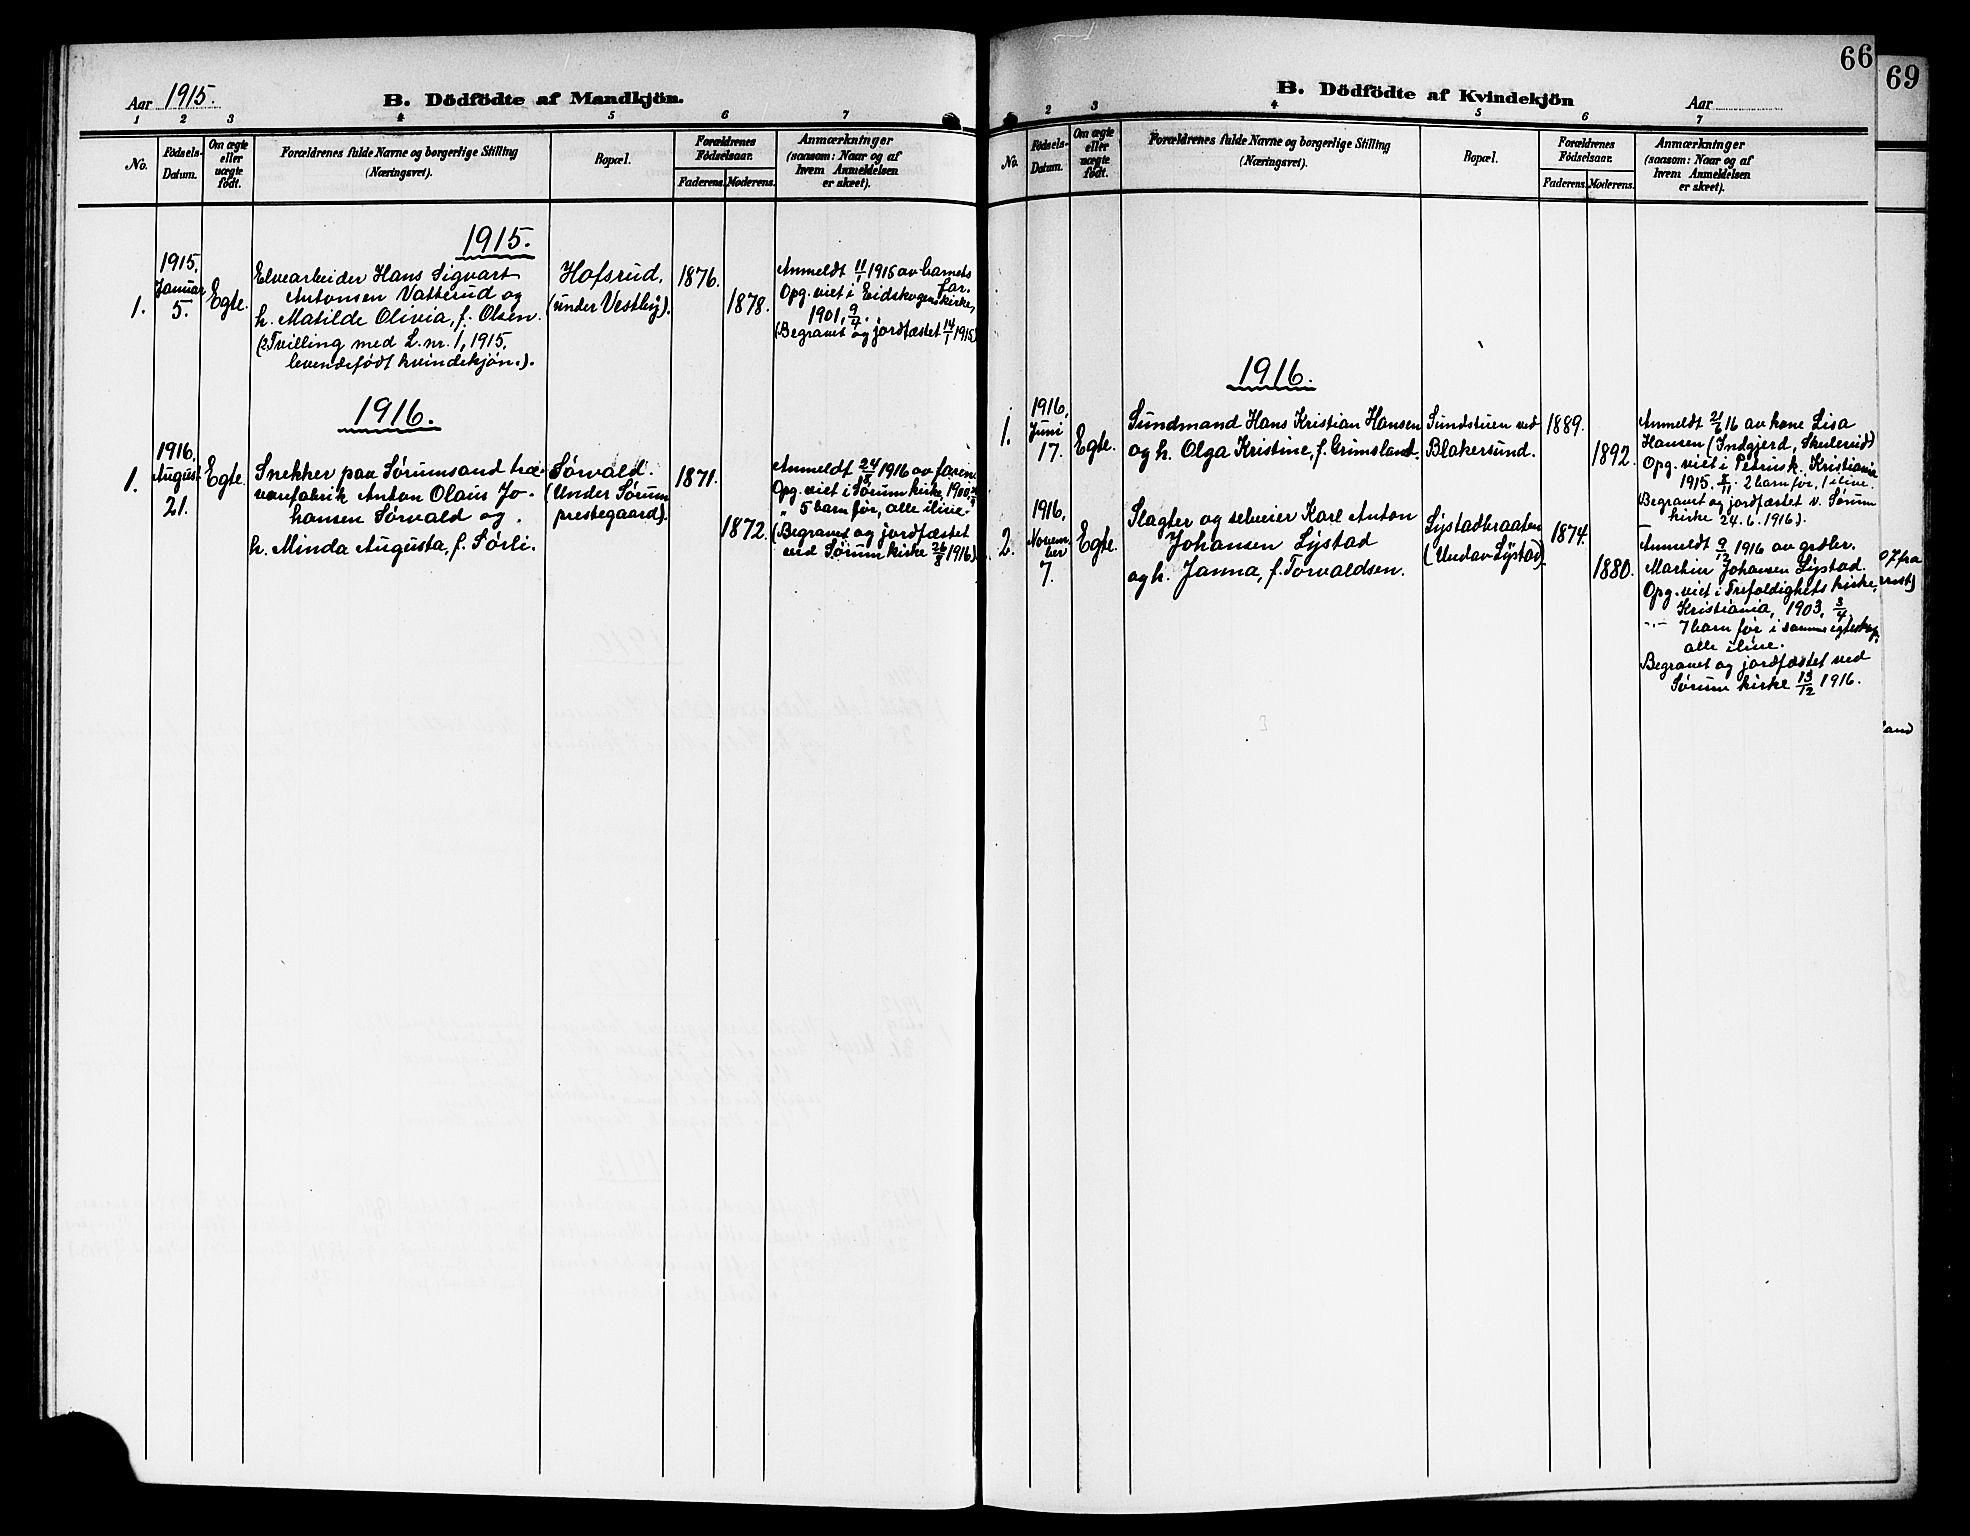 Aar 1915.
B. Dödfödte af Mandkjön.
1 2 3 4 5 6 7
No.
Födsels-
Datum.
Om ægte
eller
uægte
födt.
Forældrenes fulde Navne og borgerlige Stilling
(Næringsvei).
Bopæl.
Forældrenes
Födselsaar.
Faderens. Moderens.
Anmærkninger
(saasom: Naar og af
hvem Anmeldelsen
er skeet).
1915.
1.
1915,
Januar
5.
Egte.
Elvearbeider Hans Sigvart
Antonsen Vatterud og
h. Matilde Olivia, f. Olsen.
(Tvilling med L.nr. 1, 1915,
levendefødt kvindekjøn.).
Hofsrud,
(under Vestby).
1876.
1878.
Anmeldt 11/1 1915 av barnets
far.
Opg. viet i Eidskogens kirke,
1901, 9/4.
(Begravet og jordfæstet 14/1 1915)
1916.
1.
1916,
August
21.
Egte.
Snekker paa Sørumsand træ-
varefabrik Anton Olaus Jo-
hansen Sørvald og
h. Minda Augusta, f. Sørli.
Sørvald.
(Under Sørum
prestegaard).
1871.
1872.
Anmeldt 24/8 1916 av faren.
Opg. viet i Sørum kirke, 1900,
" 5 barn før, alle ilive.
(Begravet og jordfæstet
ved Sørum kirke 26/8 1916)
66
69
B. Dödfödte af Kvindekjön
Aar
2 3 4 5 6 7
No.
Födsels-
Datum.
Om ægte
eller
uægte
födt.
Forældrenes fulde Navne og borgerlige Stilling
(Næringsvei).
Bopæl.
Forældrenes
Födselsaar.
Faderens. Moderens.
Anmærkninger
(saasom: Naar og af
hvem Anmeldelsen
er skeet).
1916.
1.
1916,
Juni
17.
Egte.
Sundmand Hans Kristian Hansen
og h. Olga Kristine, f. Grimsland.
Sundstuen ved
Blakersund.
1889.
1892.
Anmeldt 21/6 16 av kone Lisa
Hansen (Indgjerd, Skulerud)
Opg. viet i Petrusk. Kristiania
1915. 8/11. 2 barn før, 1 ilive.
Begravet og jordfæstet v. Sørum
kirke 24.6.1916).
2.
1916,
Novem-
ber
7.
Egte.
Slagter og selveier Karl Anton
Johansen Lystad
og h. Janna, f. Torvaldsen.
Lystadbraaten
(Undav Lystad).
1874.
1880.
Anmeldt 9/12 1916 av grdbr.
Martin Johansen Lystad.
Opg. viet i Trefoldighets kirke,
Kristiania, 1903, 3/4,
-"- 7 barn før i samme egteskap,
alle ilive.
Begravet og jordfæstet ved
Sørum kirke 13/12 1916.